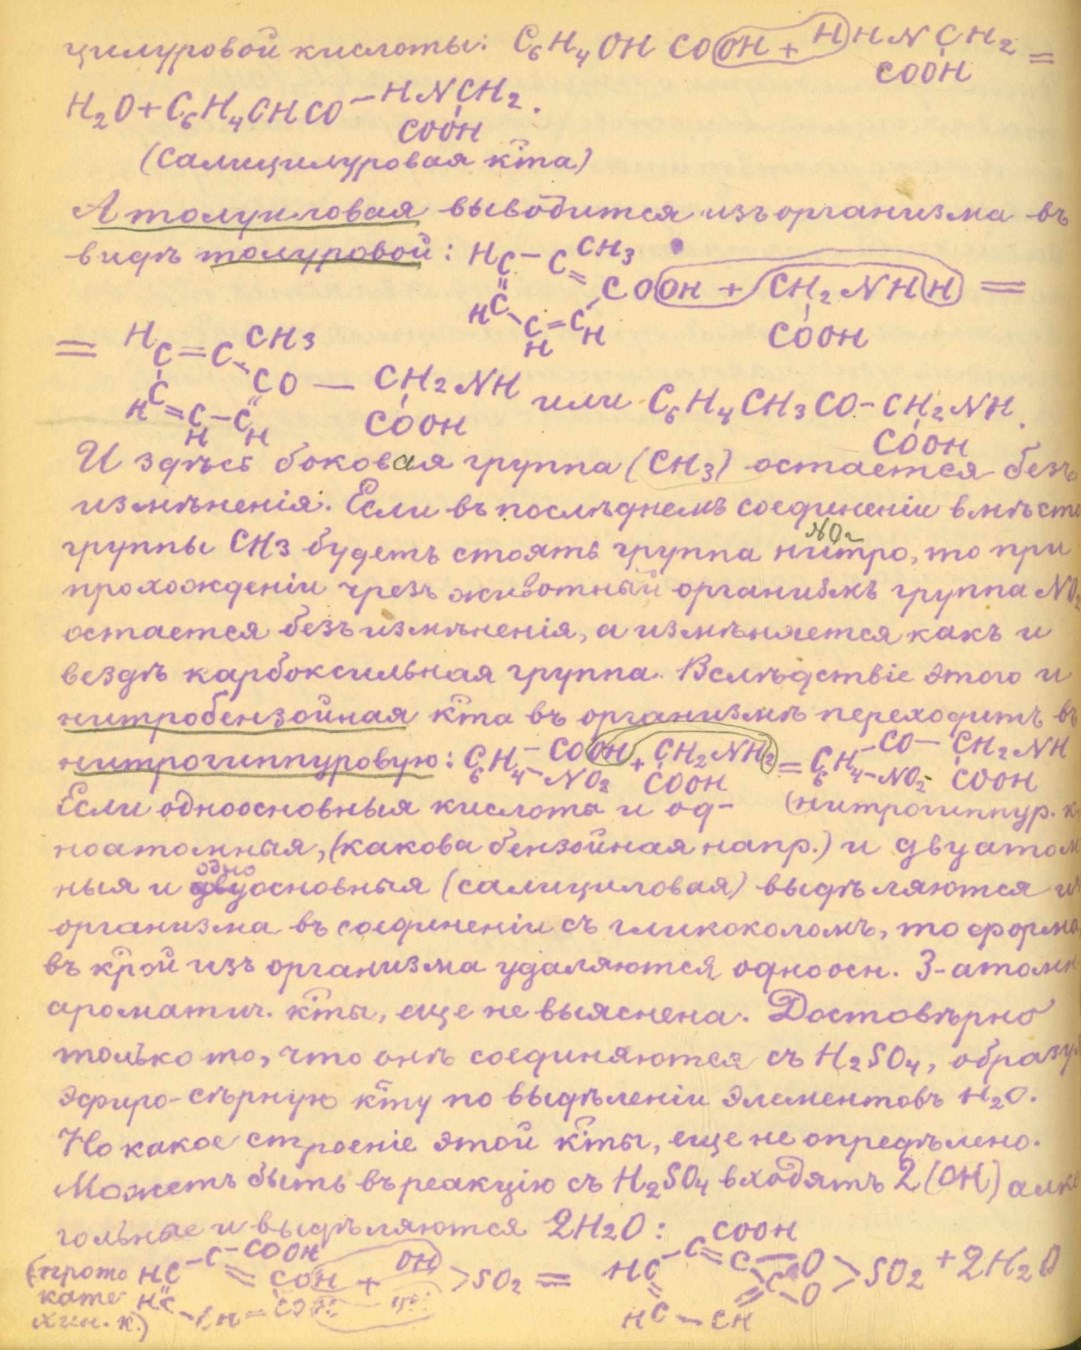 цилуровой кислоты: C6H4OH COOH + HHNCH2 =
COOH
H2O + C6H4OHCO — HNCH2.
COOH
(Салицилуровая к̃та)
А толуиловая выводится изъ организма въ
видѣ толуровой: HC — C CH3
COOH + CH2NHH =
HC C=CH COOH
H
= HC=C CH3
CO — CH2NH или C6H4CH3CO-CH2NH.
HC=C-C COOH COOH
H H
И здѣсь боковая группа (CH3) остается безъ
измѣненія. Если въ послѣднемъ соединеніи вмѣсто
NO2
группы CH3 будетъ стоять группа нитро, то при
прохожденіи чрезъ животный организмъ группа NO2
остается безъ измѣненія, а измѣняется какъ и
вездѣ карбоксильная группа. Вслѣдствіе этого и
нитробензойная к̃та въ организмѣ переходитъ въ
нитрогиппуровую: C6H4 — COOH + CH2NH2 = C6H4 — CO — CH2NH
— NO2 COOH — NO2 COOH
Если одноосновныя кислота и од- (нитрогиппур. к
ноатомныя, (какова бензойная напр.) и двуатом
одно
ныя и двуосновныя (салициловая) выдѣляются из
организма въ соединеніи съ гликоколомъ, то форма
въ к̃рой изъ организма удаляются одноосн. 3-атомн
ароматич. к̃ты, еще не выяснена. Достовѣрно
только то, что онѣ соединяются съ H2SO4, образуя
эфиро-сѣрную к̃ту по выдѣленіи элементовъ H2O.
Но какое строеніе этой к̃ты, еще не опредѣлено.
Можетъ быть въ реакцію съ H2SO4 входятъ 2(OH) алко
гольные и выдѣляются 2H2O: COOH
(прото HC — C — COOH COH + OH >SO2 = HC C=C — O >SO2 + 2H2O
кате HC C — O
хин. к.) HC — CH